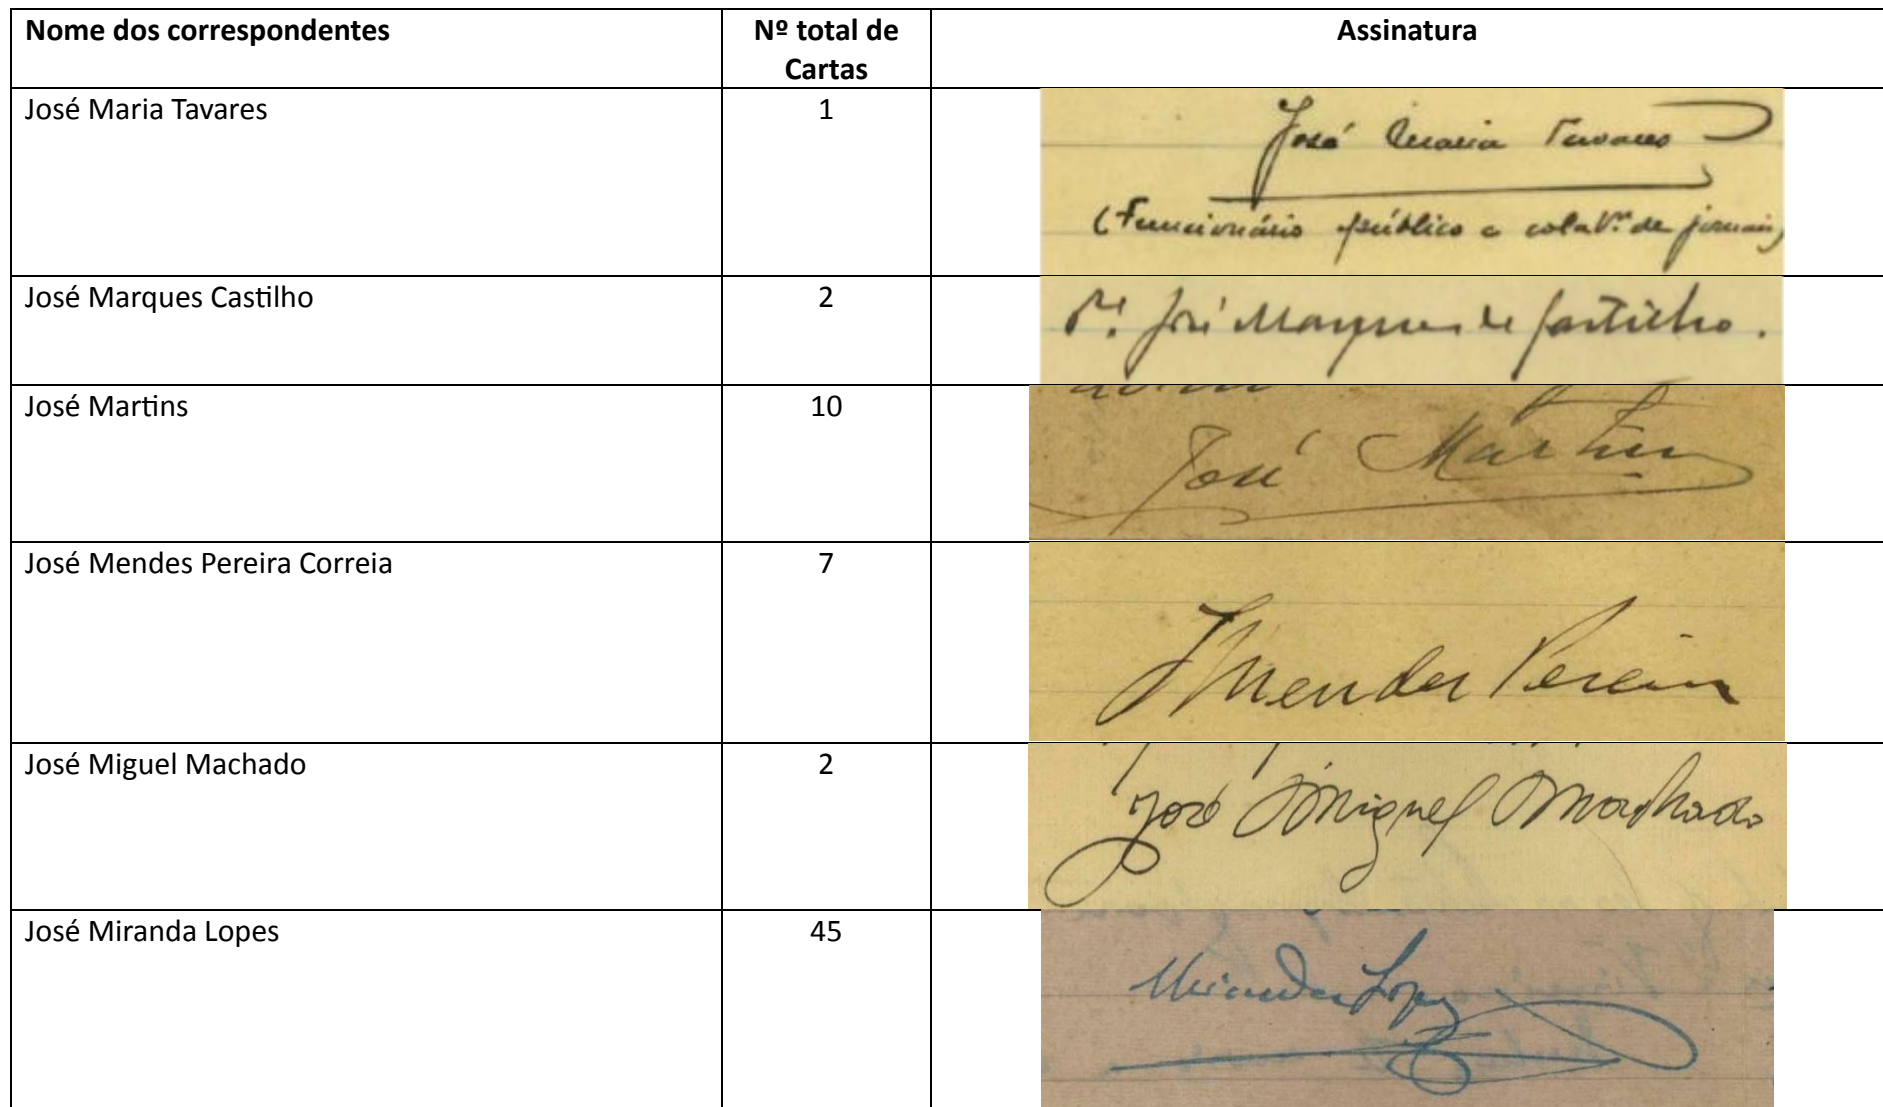 Nome dos correspondentes
Nº total de
Cartas
Assinatura
José Maria Tavares
1
José Maria Tavares
(Funcionário público e colabr. de jornais)
José Marques Castilho
2
José Marques de Castilho.
José Martins
10
José Martins
José Mendes Pereira Correia
7
JMendes Pereira
José Miguel Machado
2
José Miguel Machado
José Miranda Lopes
45
Miranda Lopes